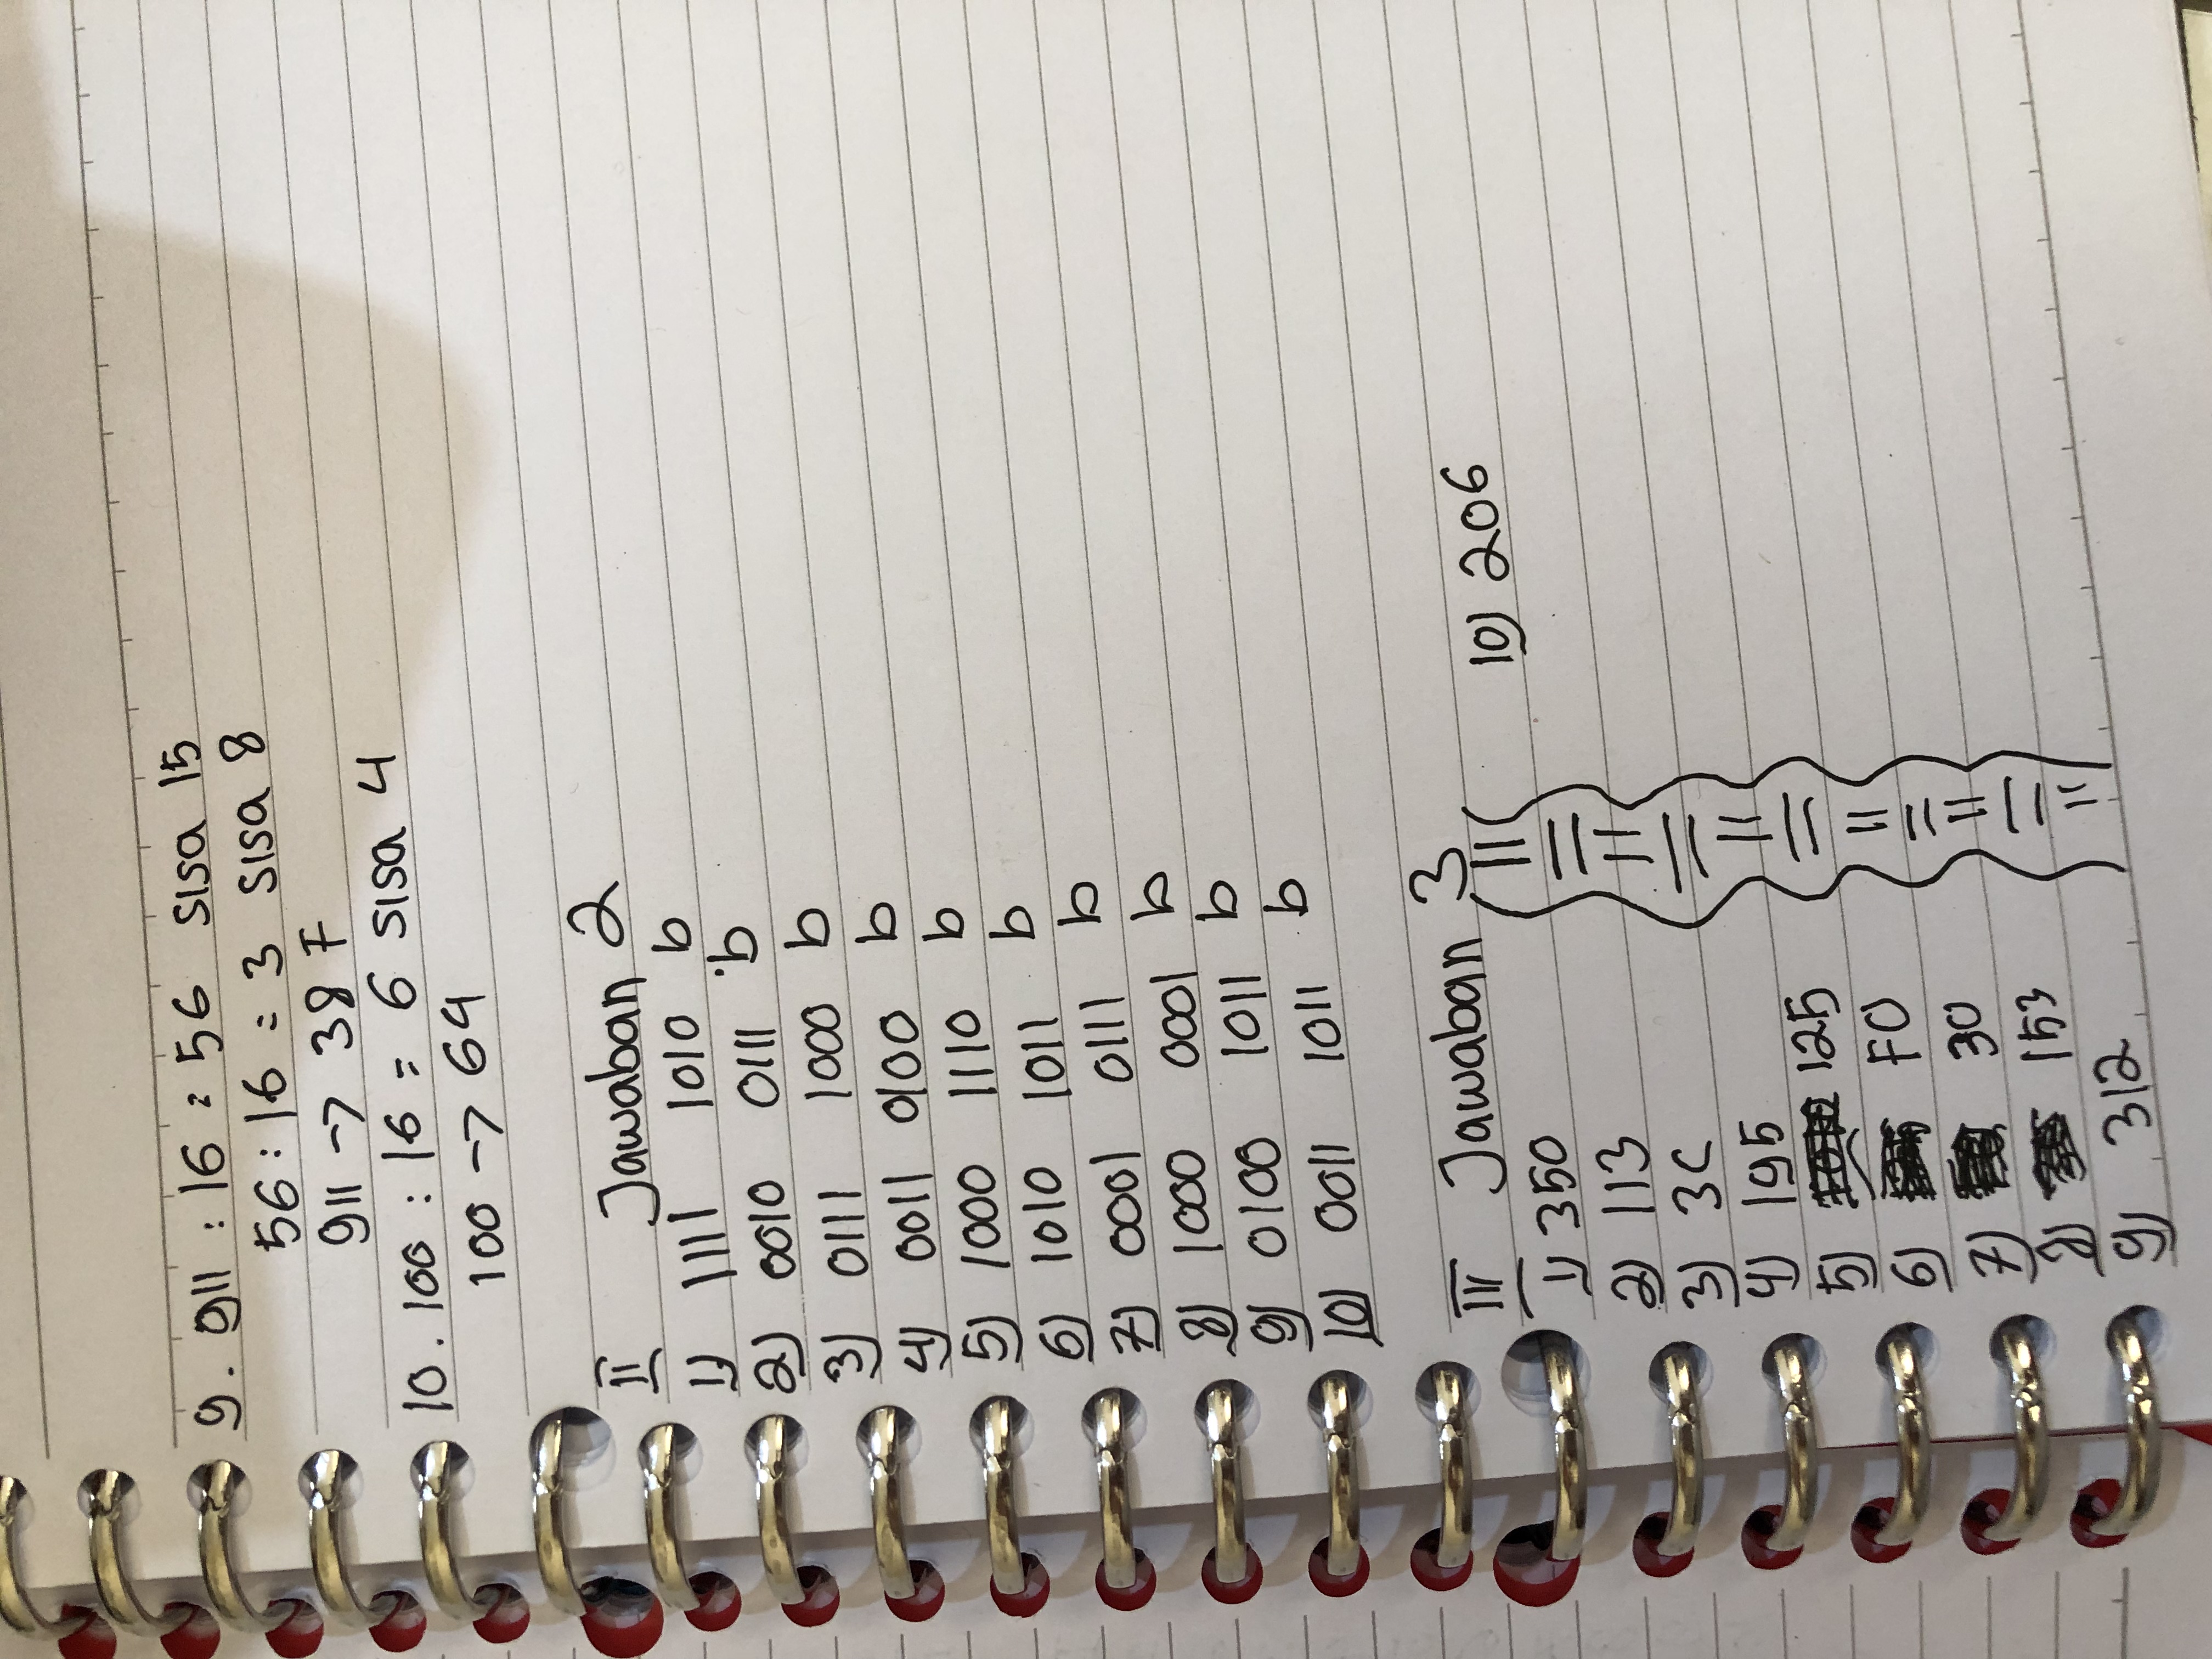 9. 911 : 16 = 56 sisa 15
56 : 16 = 3 sisa 8
911 -> 38F
10. 100 : 16 = 6 sisa 4
100 -> 64
II Jawaban 2
1) 1111 1010 b
2) 0010 0111 b
3) 0111 1000 b
4) 0011 0100 b
5) 1000 1110 b
6) 1010 1011 b
7) 0001 0111 b
8) 1000 0001 b
9) 0100 1011 b
10) 0011 1011 b
III Jawaban 3
1) 350
2) 113
3) 3C
4) 195
5) 125
6) F0
7) 30
8) 153
9) 312
10) 206